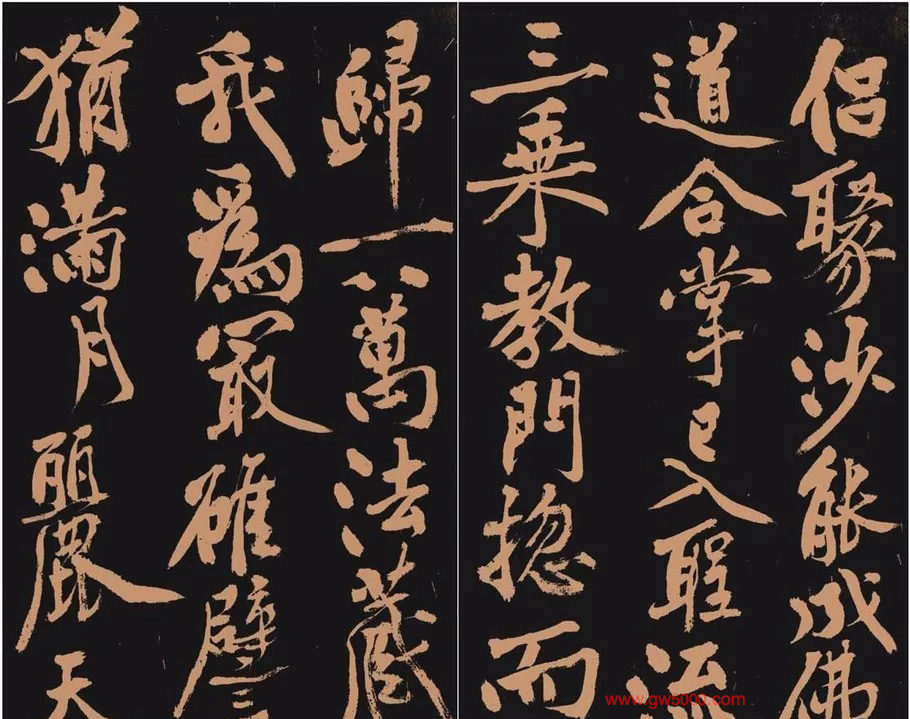 侣聚沙能成佛
道合掌已入聖流
三乗教門捴而
歸一八萬法藏
我爲冣雄譬
猶滿月麗天
www.gw5000.com